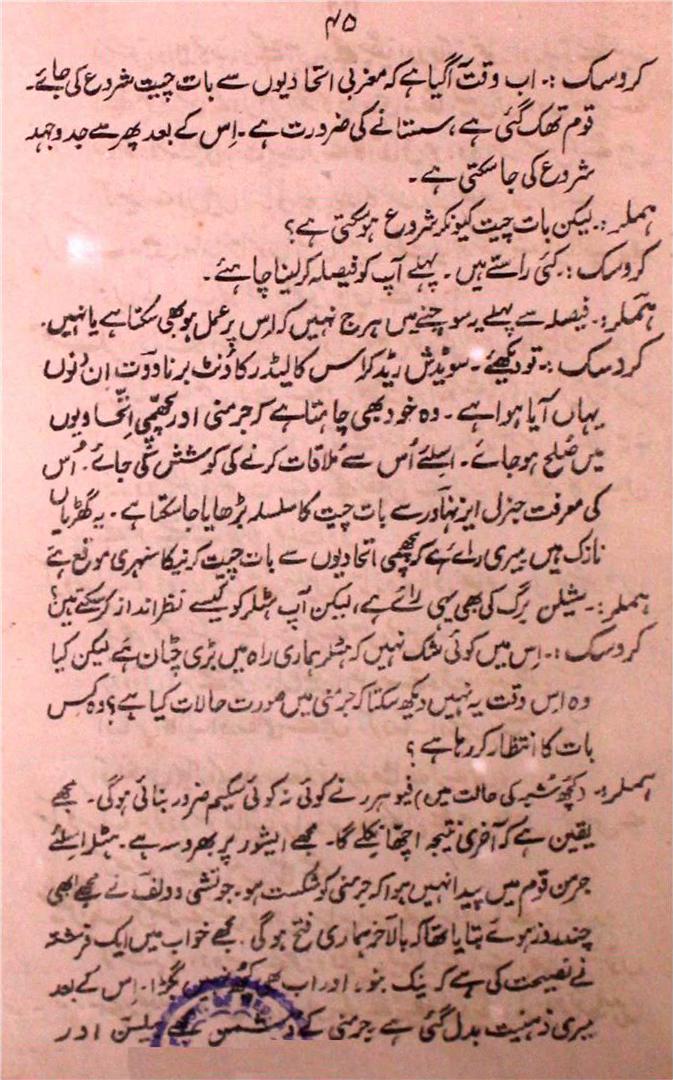 ۴۵
کروسک :۔ اب وقت آگیا ہے کہ مغربی اتحادیوں سے بات چیت شروع کی جائے۔
قوم تھک گئی ہے، سستانے کی ضرورت ہے۔ اِس کے بعد پھر سے جدوجہد
شروع کی جا سکتی ہے۔
ہملر :۔ لیکن بات چیت کیونکر شروع ہو سکتی ہے؟
کروسک :۔ کئی راستے ہیں۔ پہلے آپ کو فیصلہ کر لینا چاہئے۔
ہملر :۔ فیصلہ سے پہلے یہ سوچنے میں ہرج نہیں کہ اس پر عمل ہو بھی سکتا ہے یا نہیں۔
کروسک :۔ تو دیکھئے۔ سویڈش ریڈ کراس کا لیڈر کاؤنٹ برناڈوٹ ان دنوں
یہاں آیا ہوا ہے۔ وہ خود بھی چاہتا ہے کہ جرمنی اور پچھمی اتحادیوں
میں صُلح ہو جائے۔ اسلئے اُس سے مُلاقات کرنے کی کوشش کی جائے۔ اُس
کی معرفت جنرل ایزنہاور سے بات چیت کا سلسلہ بڑھایا جا سکتا ہے۔ یہ گھڑیاں
نازک ہیں میری رائے ہے کہ پچھمی اتحادیوں سے بات چیت کرنیکا سنہری موقع ہے
ہملر :۔ شیلن برگ کی بھی یہی رائے ہے، لیکن آپ ہٹلر کو کیسے نظر انداز کر سکتے ہیں؟
کروسک :۔ اِس میں کوئی شک نہیں کہ ہٹلر ہماری راہ میں بڑی چٹان ہے لیکن کیا
وہ اِس وقت یہ نہیں دیکھ سکتا کہ جرمنی میں صورت حالات کیا ہے؟ وہ کس
بات کا انتظار کر رہا ہے؟
ہملر :۔ (کچھ شبہ کی حالت میں) فیوہرر نے کوئی نہ کوئی سکیم ضرور بنائی ہوگی۔ مجھے
یقین ہے کہ آخری نتیجہ اچھا نکلے گا۔ مجھے ایشور پر بھروسہ ہے۔ ہٹلر اسلئے
جرمن قوم میں پیدا نہیں ہوا کہ جرمنی کو شکست ہو۔ جوتشی وولف نے مجھے ابھی
چند روز ہوئے بتایا تھا کہ بالآخر ہماری فتح ہوگی۔ مجھے خواب میں ایک فرشتہ
نے نصیحت کی ہے کہ نیک بنو، اور اب بھی کچھ نہیں بگڑا۔ اِس کے بعد
میری ذہنیت بدل گئی ہے۔ جرمنی کے دشمن مجھے اور